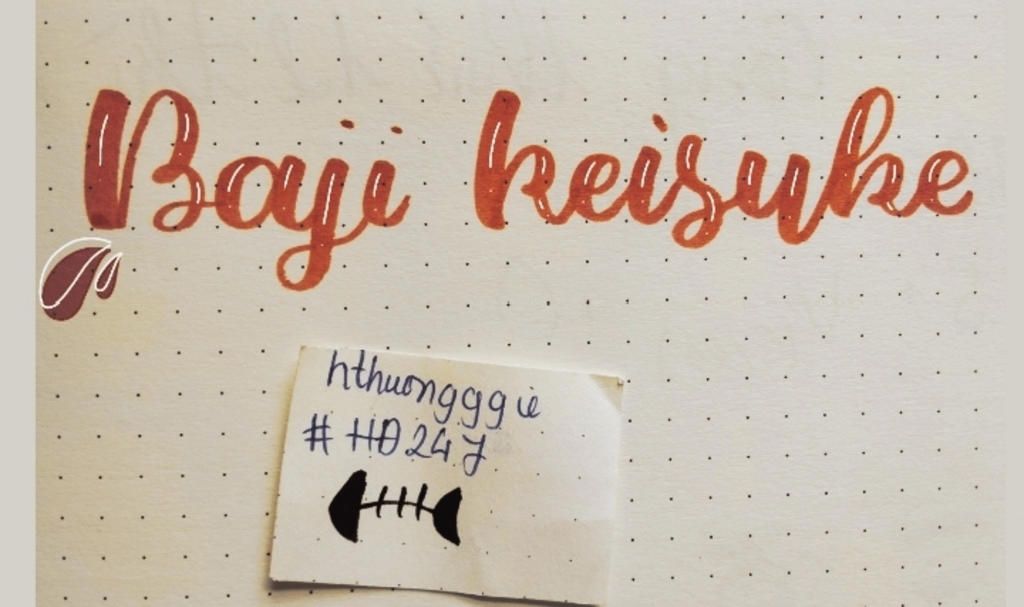 Baji keisuke
hthuongggie
#HĐ247